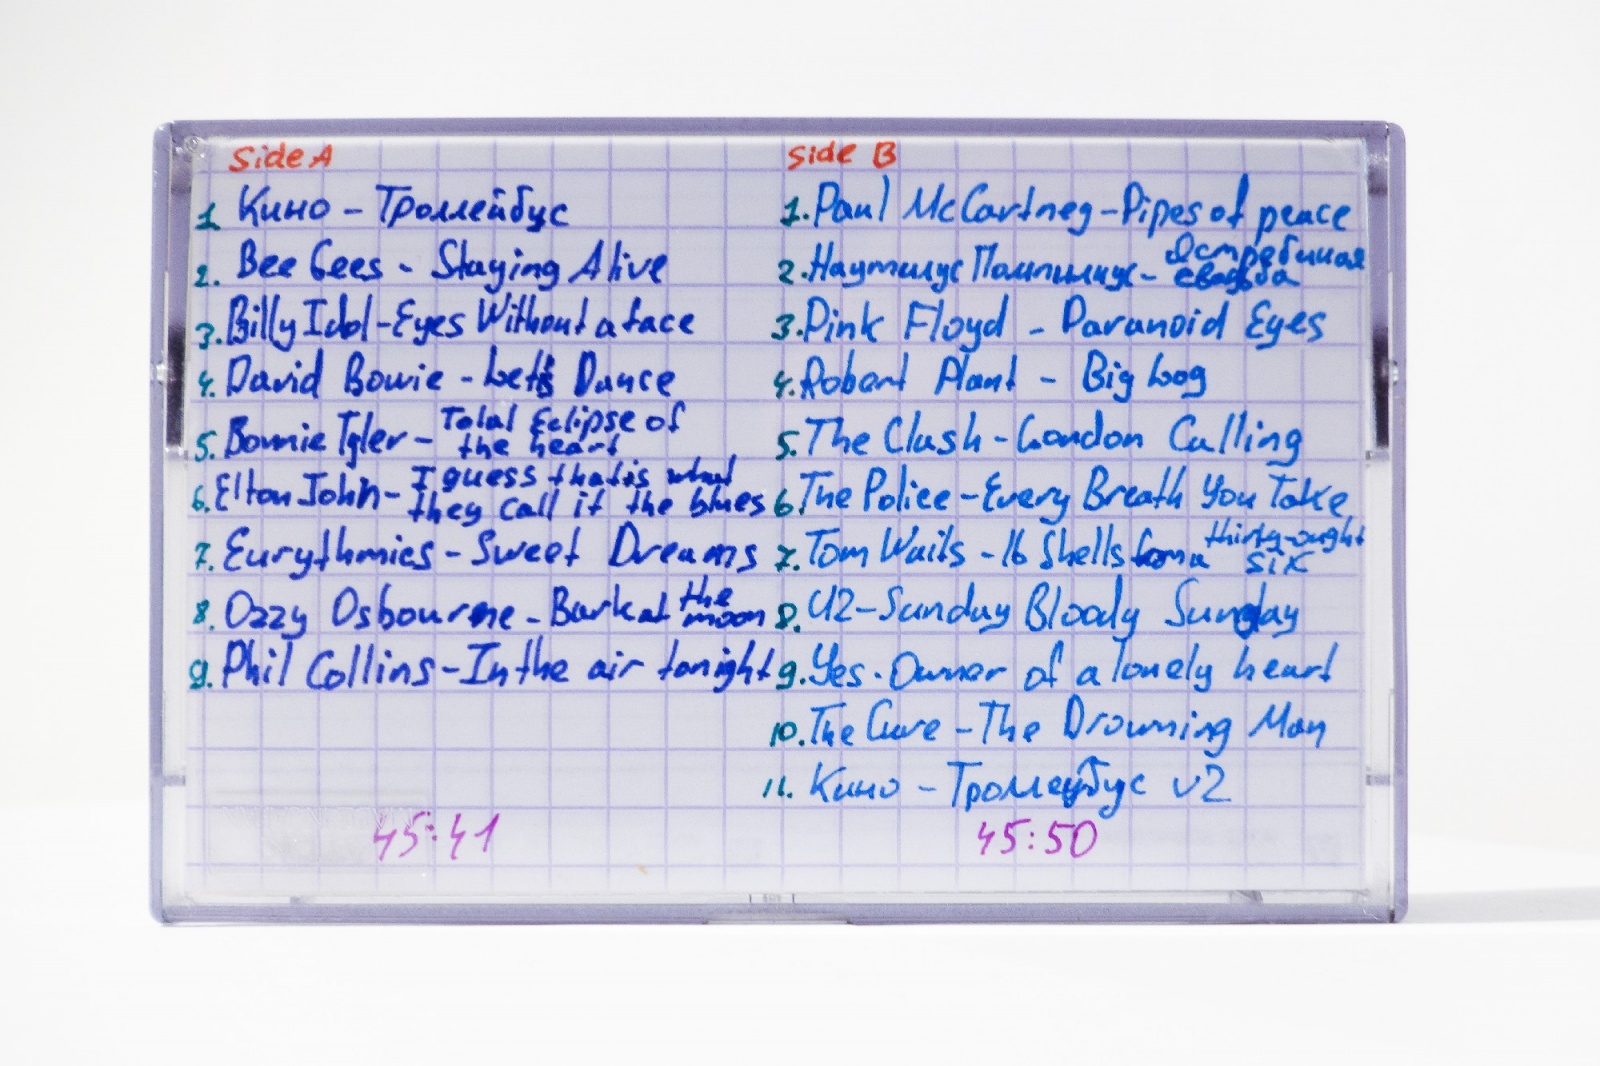 Side A
1 Кино - Троллейбус
2. Bee Gees - Staying Alive
3. Billy Idol - Eyes Without a face
4. David Bowie - Let's Dance
5. Bonnie Tyler - Total Eclipse of
the heart
6. Elton John - I guess that is what
they call it the blues
7. Eurythmics - Sweet Dreams
8. Ozzy Osbourne - Bark at the
moon
9. Phil Collins - In the air tonight
45:41
Side B
1. Paul McCartney - Pipes of peace
2. Наутилус Помпилиус - Ястребиная
свадьба
3. Pink Floyd - Paranoid Eyes
4. Robert Plant - Big Log
5. The Clash - London Calling
6. The Police - Every Breath You Take
7. Tom Waits - 16 Shells from a thirty-ought
six
8. U2 - Sunday Bloody Sunday
9. Yes - Owner of a lonely heart
10. The Cure - The Drowning Man
11. Кино - Троллейбус v2
45:50